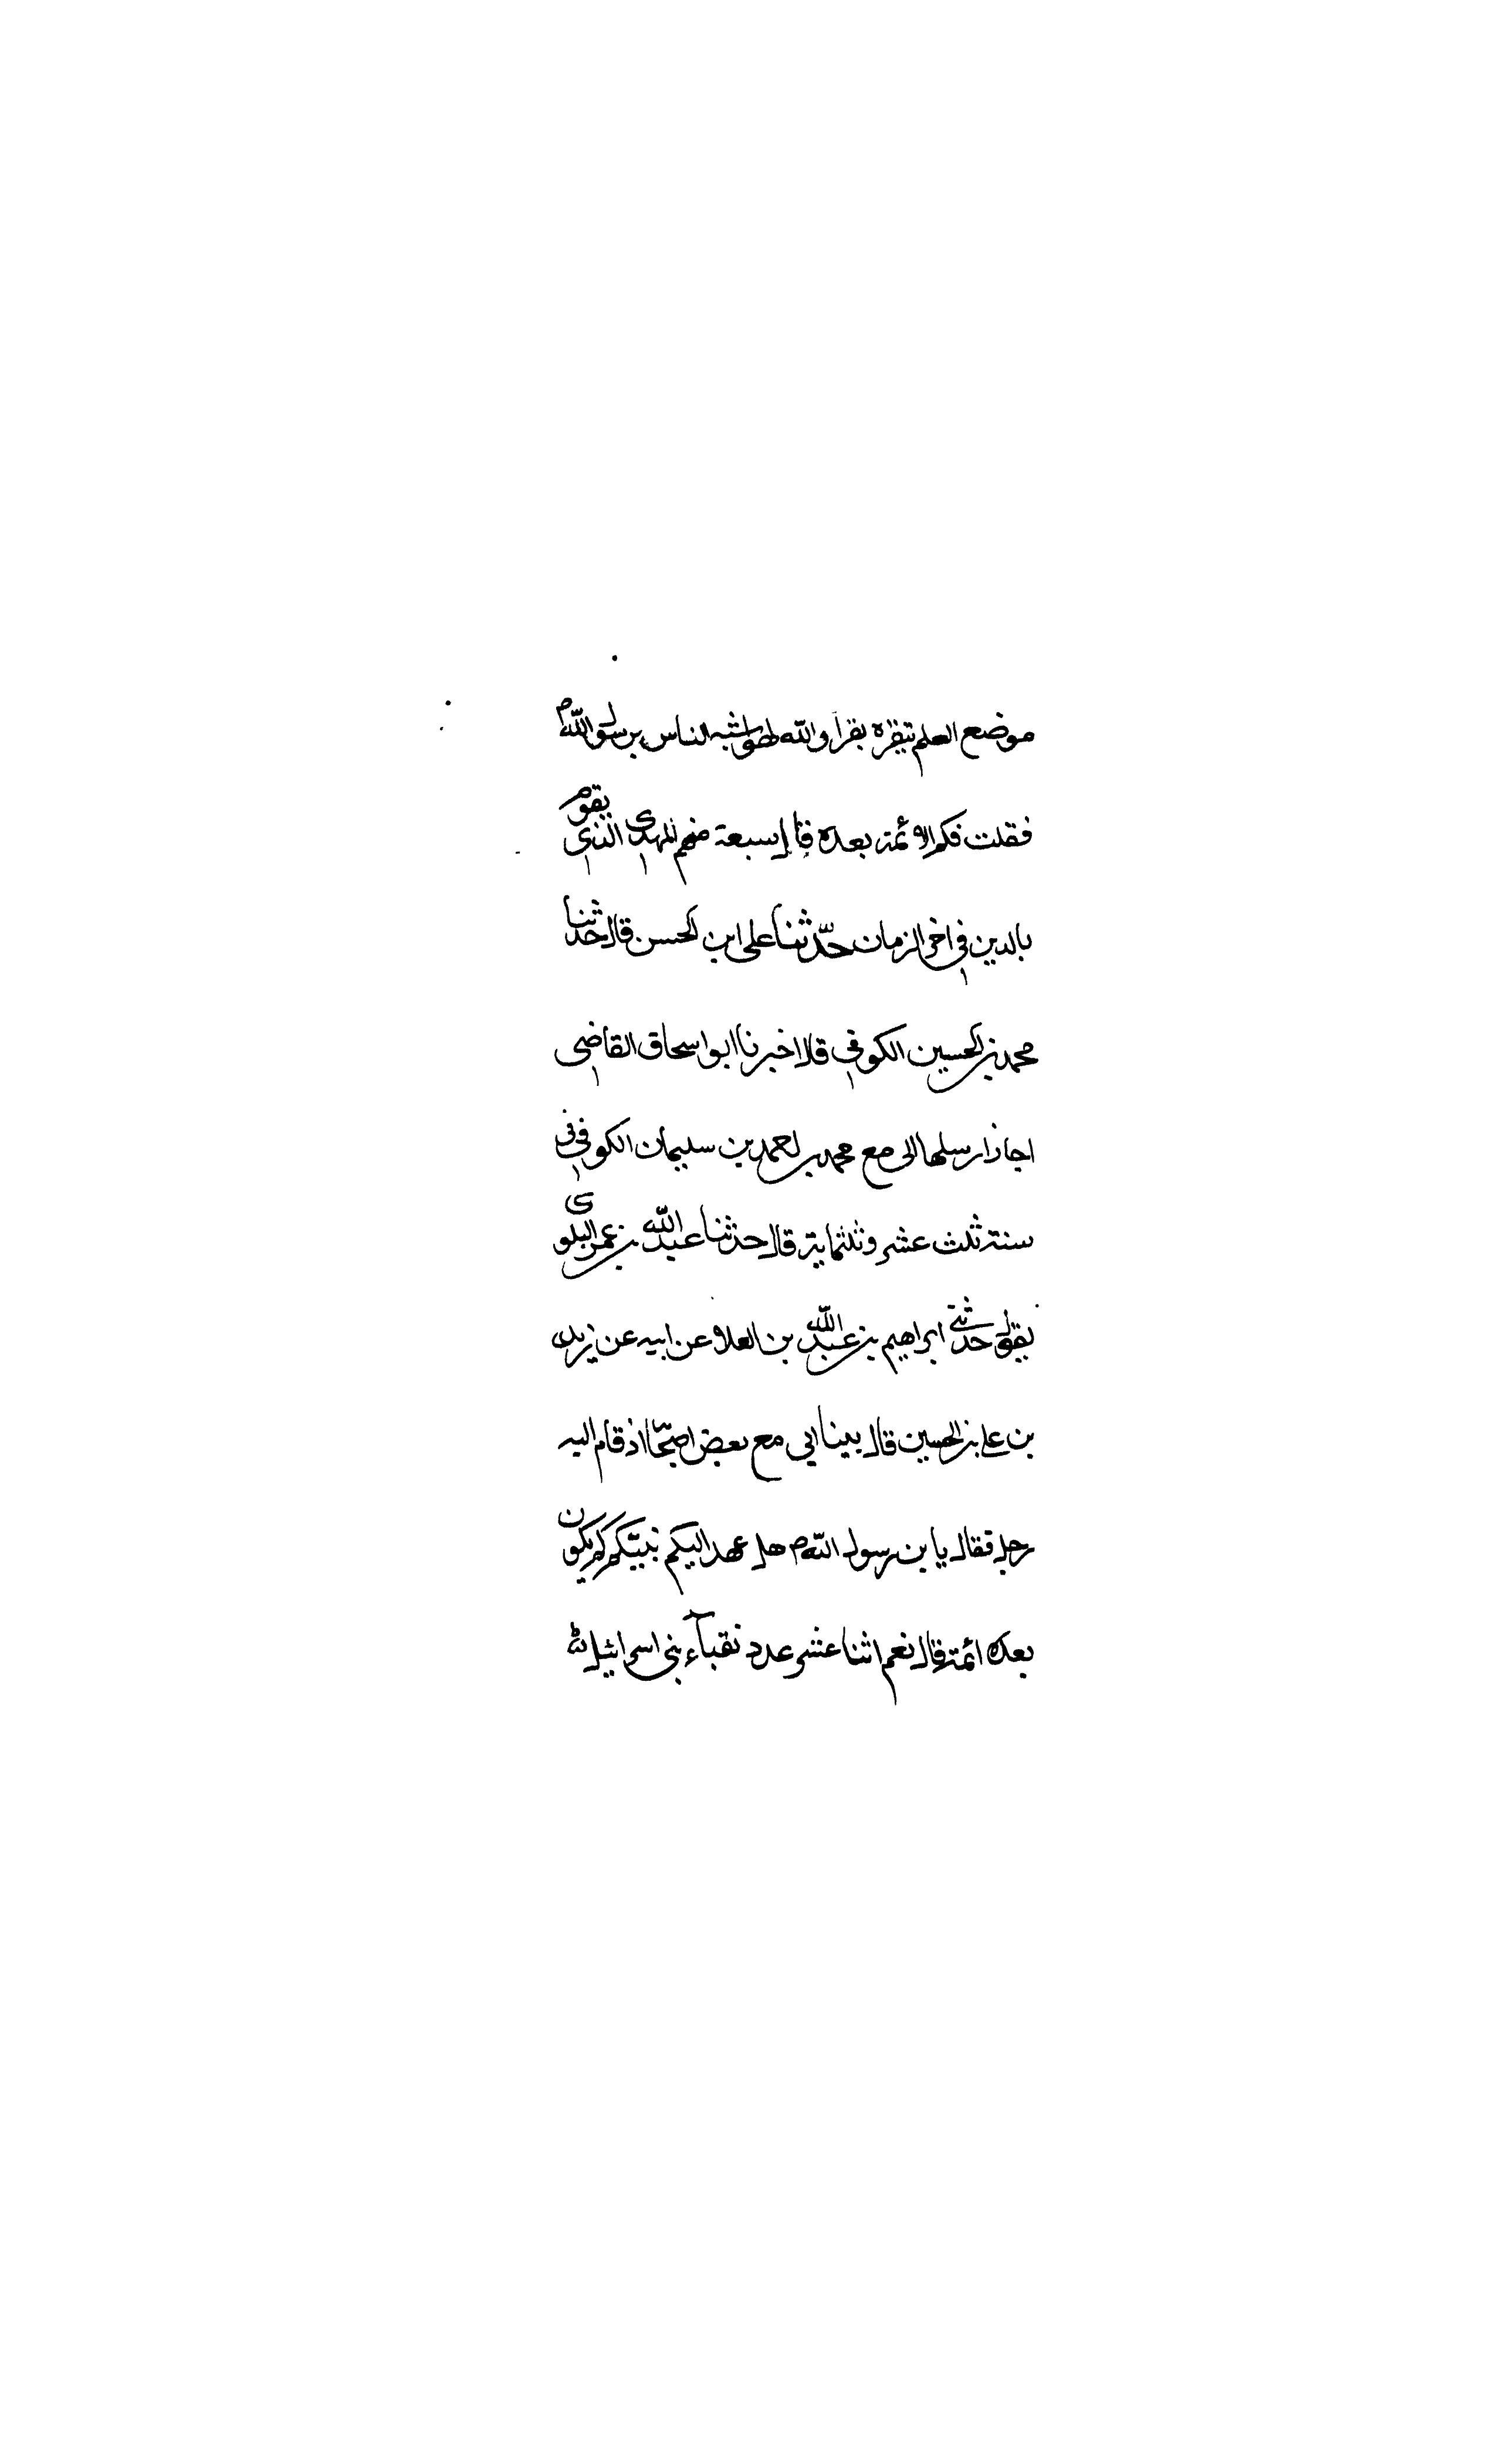 موضع العلم يبقره بقرا والله لهو اشبه الناس برسول الله ص
فقلت فكم الائمة بعده قال سبعة منهم المهدى الذى يقوم
بالدين فى اخر الزمان حدّثنا على ابن الحسن قال حدثنا
محمد بن الحسين الكوفى قال اخبرنا ابو اسحاق القاضى
اجازا رسلها الى مع محمد بن احمد بن سليمان الكوفى فى
سنة ثلث عشر وثلثماية قال حدثنا عبد الله بن عمر البلوى
يقول حدثنى ابراهيم بن عبد الله بن العلا عن ابيه عن زيد
بن على بن الحسين قال بينا ابى مع بعض اصحابه اذ قام اليه
رجل فقال يا بن رسول الله ص هل عهد اليكم نبيّكم كم يكون
بعده ائمة قال نعم اثنا عشر عدد نقبآء بنى اسرائيل